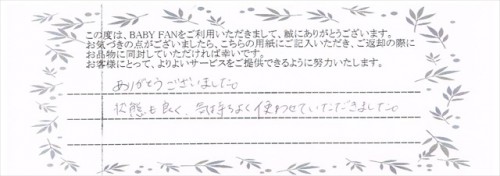 この度は、BABY FANをご利用いただきまして、誠にありがとうございます。
お気づきの点がございましたら、こちらの用紙にご記入いただき、ご返却の際に
お品物に同封していただければ幸いです。
お客様にとって、よりよいサービスをご提供できるように努力いたします。
ありがとうございました。
状態も良く、気持ちよく使わせていただきました。